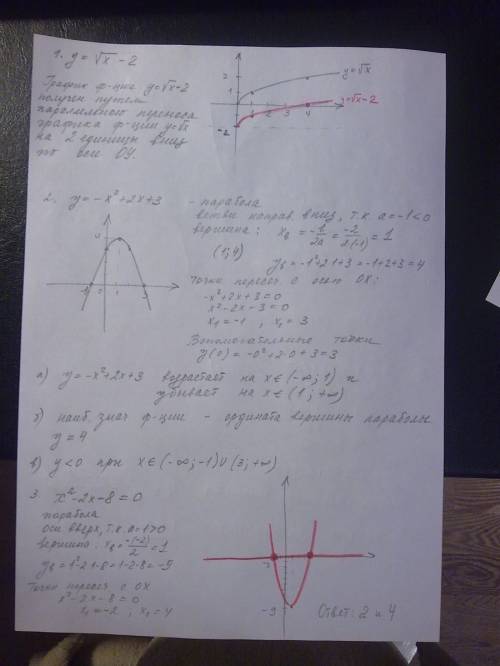 1. y = √x - 2
График ф-ции y=√x-2
получен путем
параллельного переноса
графика ф-ции y=√x
на 2 единицы вниз
по оси OY.
y=√x
y=√x-2
2
1
1 2 3 4
-2
2. y = -x²+2x+3
- парабола
ветви направ вниз, т.к a=-1<0
вершина: xв = -b/2a = -2/2·(-1) = 1
(1;4)
yв = -1²+2·1+3 = -1+2+3 = 4
Точки пересеч с осью OX:
-x²+2x+3=0
x²-2x-3=0
x₁=-1 ; x₂=3
Вспомогательные точки
y(0) = -0²+2·0+3=3
а) y=-x²+2x+3 возрастает на x∈(-∞;1) и
убывает на x∈(1;+∞)
б) наиб. знач ф-ции - ордината вершины параболы
y=4
в) y<0 при x∈(-∞;-1)∪(3;+∞)
3. x²-2x-8=0
парабола
оси вверх, т.к a=1>0
вершина: xв = -(-2)/2 = 1
yв = 1²-2·1-8 = 1-2-8 = -9
Точки пересеч с OX
x²-2x-8=0
x₁=-2 ; x₂=4
-9
Ответ: 2 и 4